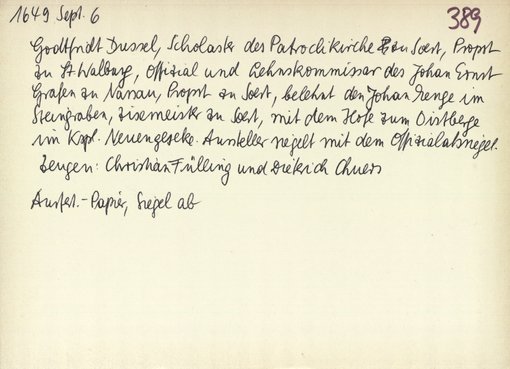 1649 Sept. 6
389
Godtfridt Dussel, Scholaster des Patroclikirche zu Soest, Propst
zu St. Walburg, Offizial und Lehnskommissar des Johan Ernst
Grafen zu Nassau, Propst zu Soest, belehnt den Johan Menge im
Steingraben, Zisemeister zu Soest, mit dem Hofe zum Oistberge
im Kspl. Neuengeseke. Aussteller siegelt mit dem Offizialatssiegel.
Zeugen: Christian Fülling und Dieterich
Ausfert.-Papier, Siegel ab